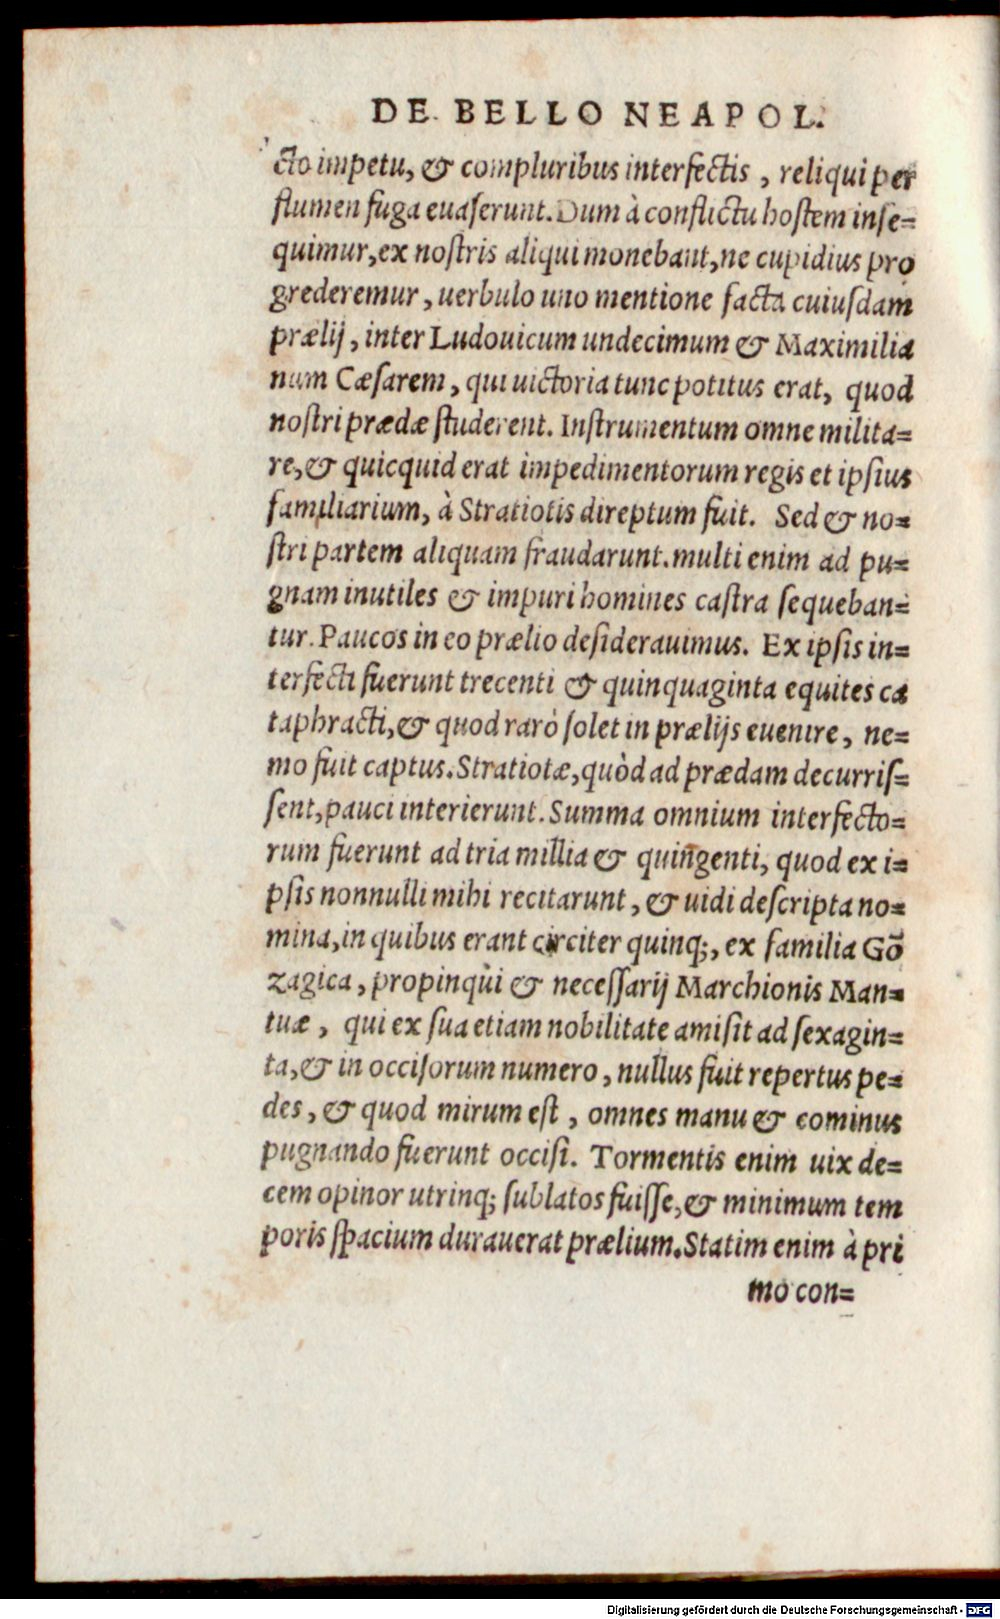 DE BELLO NEAPOL.
cto impetu, & compluribus interfectis, reliqui per
flumen fuga euaſerunt. Dum à conflictu hoſtem inſe=
quimur, ex noſtris aliqui monebant, ne cupidius pro
grederemur, uerbulo uno mentione facta cuiuſdam
prælij, inter Ludouicum undecimum & Maximilia
num Cæſarem, qui uictoria tunc potitus erat, quod
noſtri prædæ ſtuderent. Inſtrumentum omne milita=
re, & quicquid erat impedimentorum regis et ipſius
familiarium, à Stratiotis direptum fuit. Sed & no=
ſtri partem aliquam fraudarunt. multi enim ad pu=
gnam inutiles & impuri homines caſtra ſequeban=
tur. Paucos in eo prælio deſiderauimus. Ex ipſis in=
terfecti fuerunt trecenti & quinquaginta equites ca
taphracti, & quod rarò ſolet in prælijs euenire, ne=
mo fuit captus. Stratiotæ, quòd ad prædam decurriſ=
ſent, pauci interierunt. Summa omnium interfecto=
rum fuerunt ad tria millia & quingenti, quod ex i=
pſis nonnulli mihi recitarunt, & uidi deſcripta no=
mina, in quibus erant circiter quinq;, ex familia Gō
zagica, propinqui & neceſſarij Marchionis Man=
tuæ, qui ex ſua etiam nobilitate amiſit ad ſexagin=
ta, & in occiſorum numero, nullus fuit repertus pe=
des, & quod mirum eſt, omnes manu & cominus
pugnando fuerunt occiſi. Tormentis enim uix de=
cem opinor utrinq; ſublatos fuiſſe, & minimum tem
poris ſpacium durauerat prælium. Statim enim à pri
mo con=
Digitalisierung gefördert durch die Deutsche Forschungsgemeinschaft - DFG